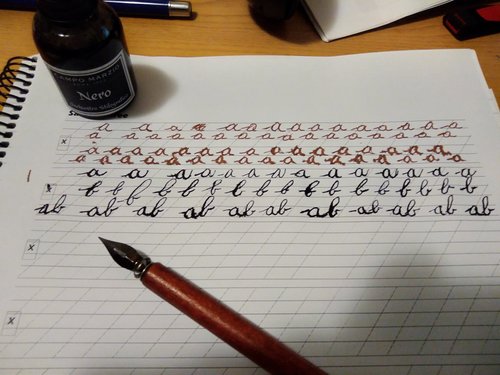 CAMPO MARZIO
Nero
a a a a a a a a a a a a a a a a
a a a a a a a a a a a a a a a a a
x
a a a a a a a a a a a a a a a a
a a a a a a a a a a a a a a a a a a
a a a a a a a a a a a a a a
x
b b b b b b b b b b b b b b b b b
ab ab ab ab ab ab ab ab ab ab ab
x
x